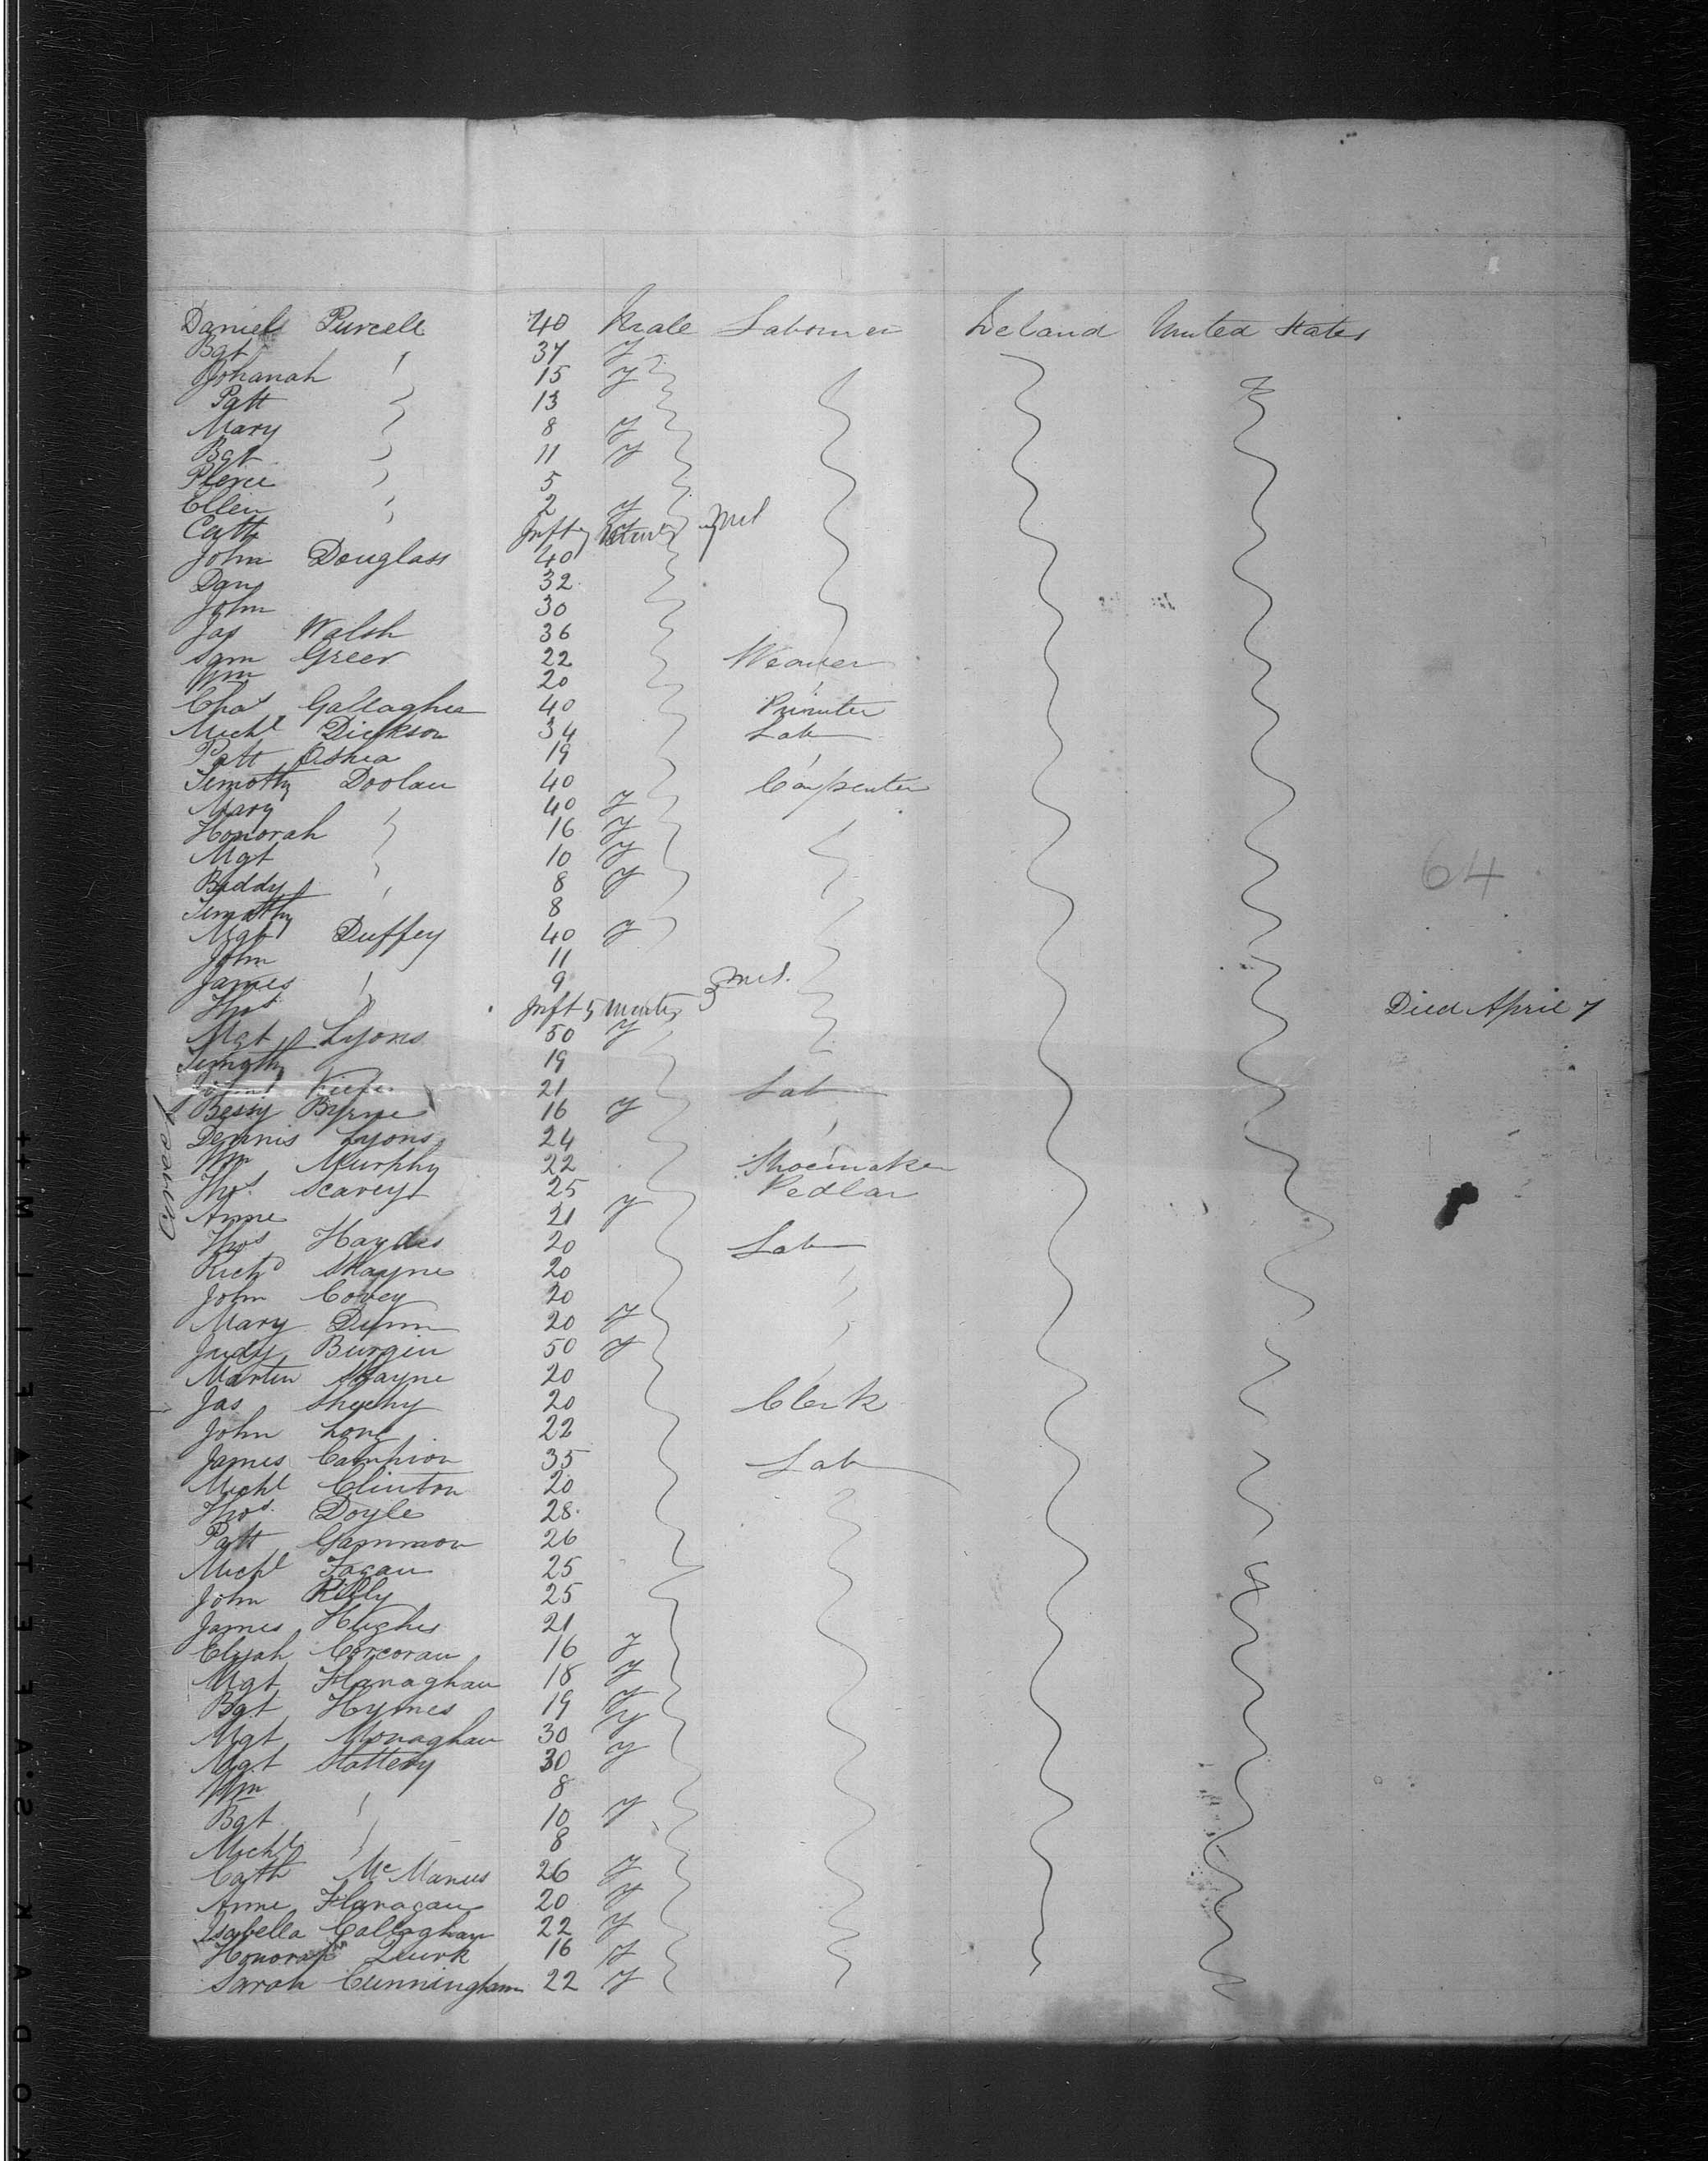 Daniel Purcell 40 Male Labourer Ireland United States
Bgt " 37 f
Johanah 15 f
Patt " 13
Mary " 8 f
Bgt " 11 f
Pierce " 5
Ellen " 2 f
Cath Inft
John Douglass 40
Dan 32
John 30
Jas Walsh 36
Sam Greer 22 Weaver
Wm 20 "
Chas Gallagher 40 Printer
Michl Dickson 34 Lab
Patt Oshea 19 "
Timothy Doolan 40 Carpenter
Mary 40 f
Honorah " 16 f
Mgt " 10 f
Biddy " 8 f
Timothy 8
Mgt Duffey 40 f
John 11
James " 9
Thos " Inft 5 Months Died April 7
Mgt Lyons 50 f
Timothy 19
21 Lab
Bessy Byrne 16 f
Dennis Lyons 24 "
Wm Murphy 22 Shoemaker
Thos 25 Pedlar
Anne 21 f
Thos 20 Lab
Richd 20
John Covey 20
Mary Dunn 20 f
Judy Burgin 50 f
Martin 20
Jas Sheehy 20 Clerk
John Long 22
James Campion 35 Lab
Michl Clinton 20
Thos Doyle 28
Patt Gammon 26
Michl Fagan 25
John Rilly 25
James Hughes 21
Elijah Corcoran 16 f
Mgt Flanaghan 18 f
Bgt Hymes 19 f
Mgt Monaghan 30 f
Mgt Slattery 30 f
Wm 8
Bgt " 10 f
Michl " 8
Cath McManus 26 f
Anne Flanagan 20 f
Isabella Callaghan 22 f
Honorah 16 f
Sarah Cunningham 22 f
64